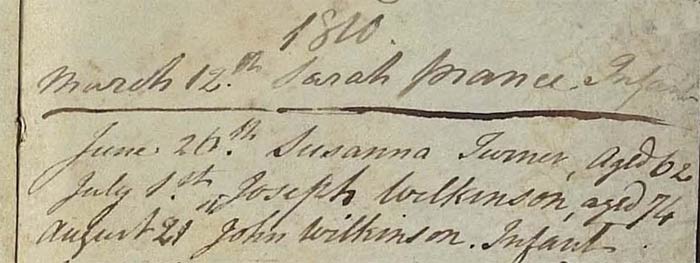 1810.
March 12.th Sarah France. Infant
June 26.th Susanna Turner, Aged 62
July 1.th Joseph Wilkinson, aged 74
August 21 John Wilkinson. Infant